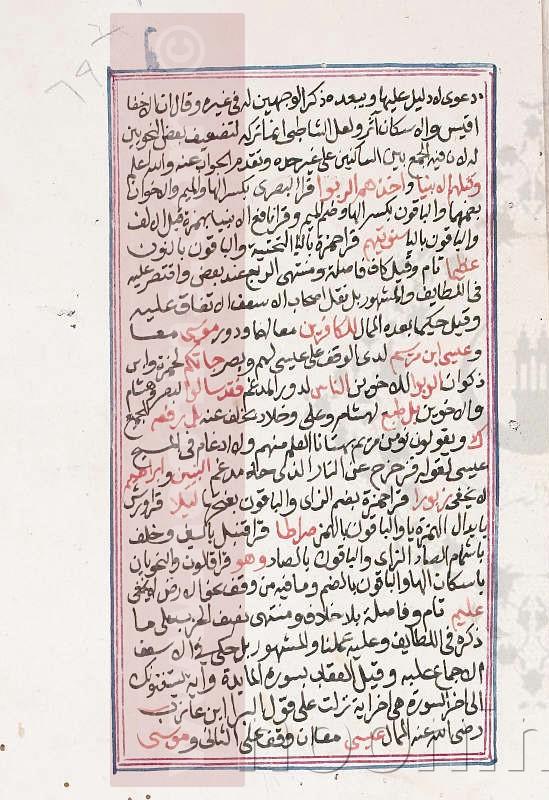 دعوى لا دليل عليها ويبعده ذكر الوجهين له في غيره وقال ان الاخفا
اقيس والاسكان آثر ولعل الشاطبي انما تركه لتضعيف بعض النحويين
له لان فيه الجمع بين الساكنين على غير حده وتقدم الجواب عنه والله اعلم
وقتلهم الانبيا واخذهم الربوا قرا البصري بكسر الها والميم والاخوان
بضمها والباقون بكسر الها وضم الميم وقرا نافع الانبيا بهمزة قبل الالف
والباقون باليا سنؤتيهم قرا حمزة باليا التحتية والباقون بالنون
عظيما تام وقيل كاف فاصلة ومنتهى الربع عند بعض واقتصر عليه
في اللطايف والمشهور بل نقل اصحاب الاسعف الاتفاق عليه
وقيل حكيما بعده الممال للكافرين معا لهما ودور موسى معا
وعيسى ابن مريم لدى الوقف على عيسى لهم وبصر جاتكم لحمزة وابن
ذكوان الربوا للاخوين الناس لدور المدغم فقد سالوا لبصر وهشام
والاخوين بل طبع لهشام وعلي وخلاد بخلف عنه بل رفعه للجميع
ك ويقولون نومن مريم بهتانا العلم منهم ولا ادغام في المسيح
عيسى لقوله فزحزح عن النار الذي حاه مدغم النبين وابراهيم
لا يخفى زبورا قرا حمزة بضم الزاي والباقون بفتحها ليلا قرا ورش
بابدال الهمزة يا والباقون بالهمز صراطا قرا قنبل بالسين وخلف
باشمام الصاد الزاي والباقون بالصاد وهو قرا قالون والنحويان
باسكان الها والباقون بالضم وما فيه من وقف نحو الارض لا يخفى
عليم تام وفاصلة بلا خلاف ومنتهى نصف الحزب على ما
ذكره في اللطايف وعليه عملنا والمشهور بل حكى في الاسعف
الاجماع عليه وقيل العقاب بسورة المائدة واية يستفتونك
الى اخر السورة هي اخر اية نزلت على قول البرا ابن عازب
رضي الله عنه الممال عيسى معا ان وقف على الثاني وموسى